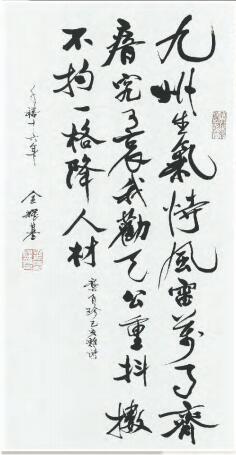 九州生氣恃風雷萬馬齊
瘖究可哀我勸天公重抖擻
不拘一格降人材
龔自珍己亥雜詩
十六年
金耀基